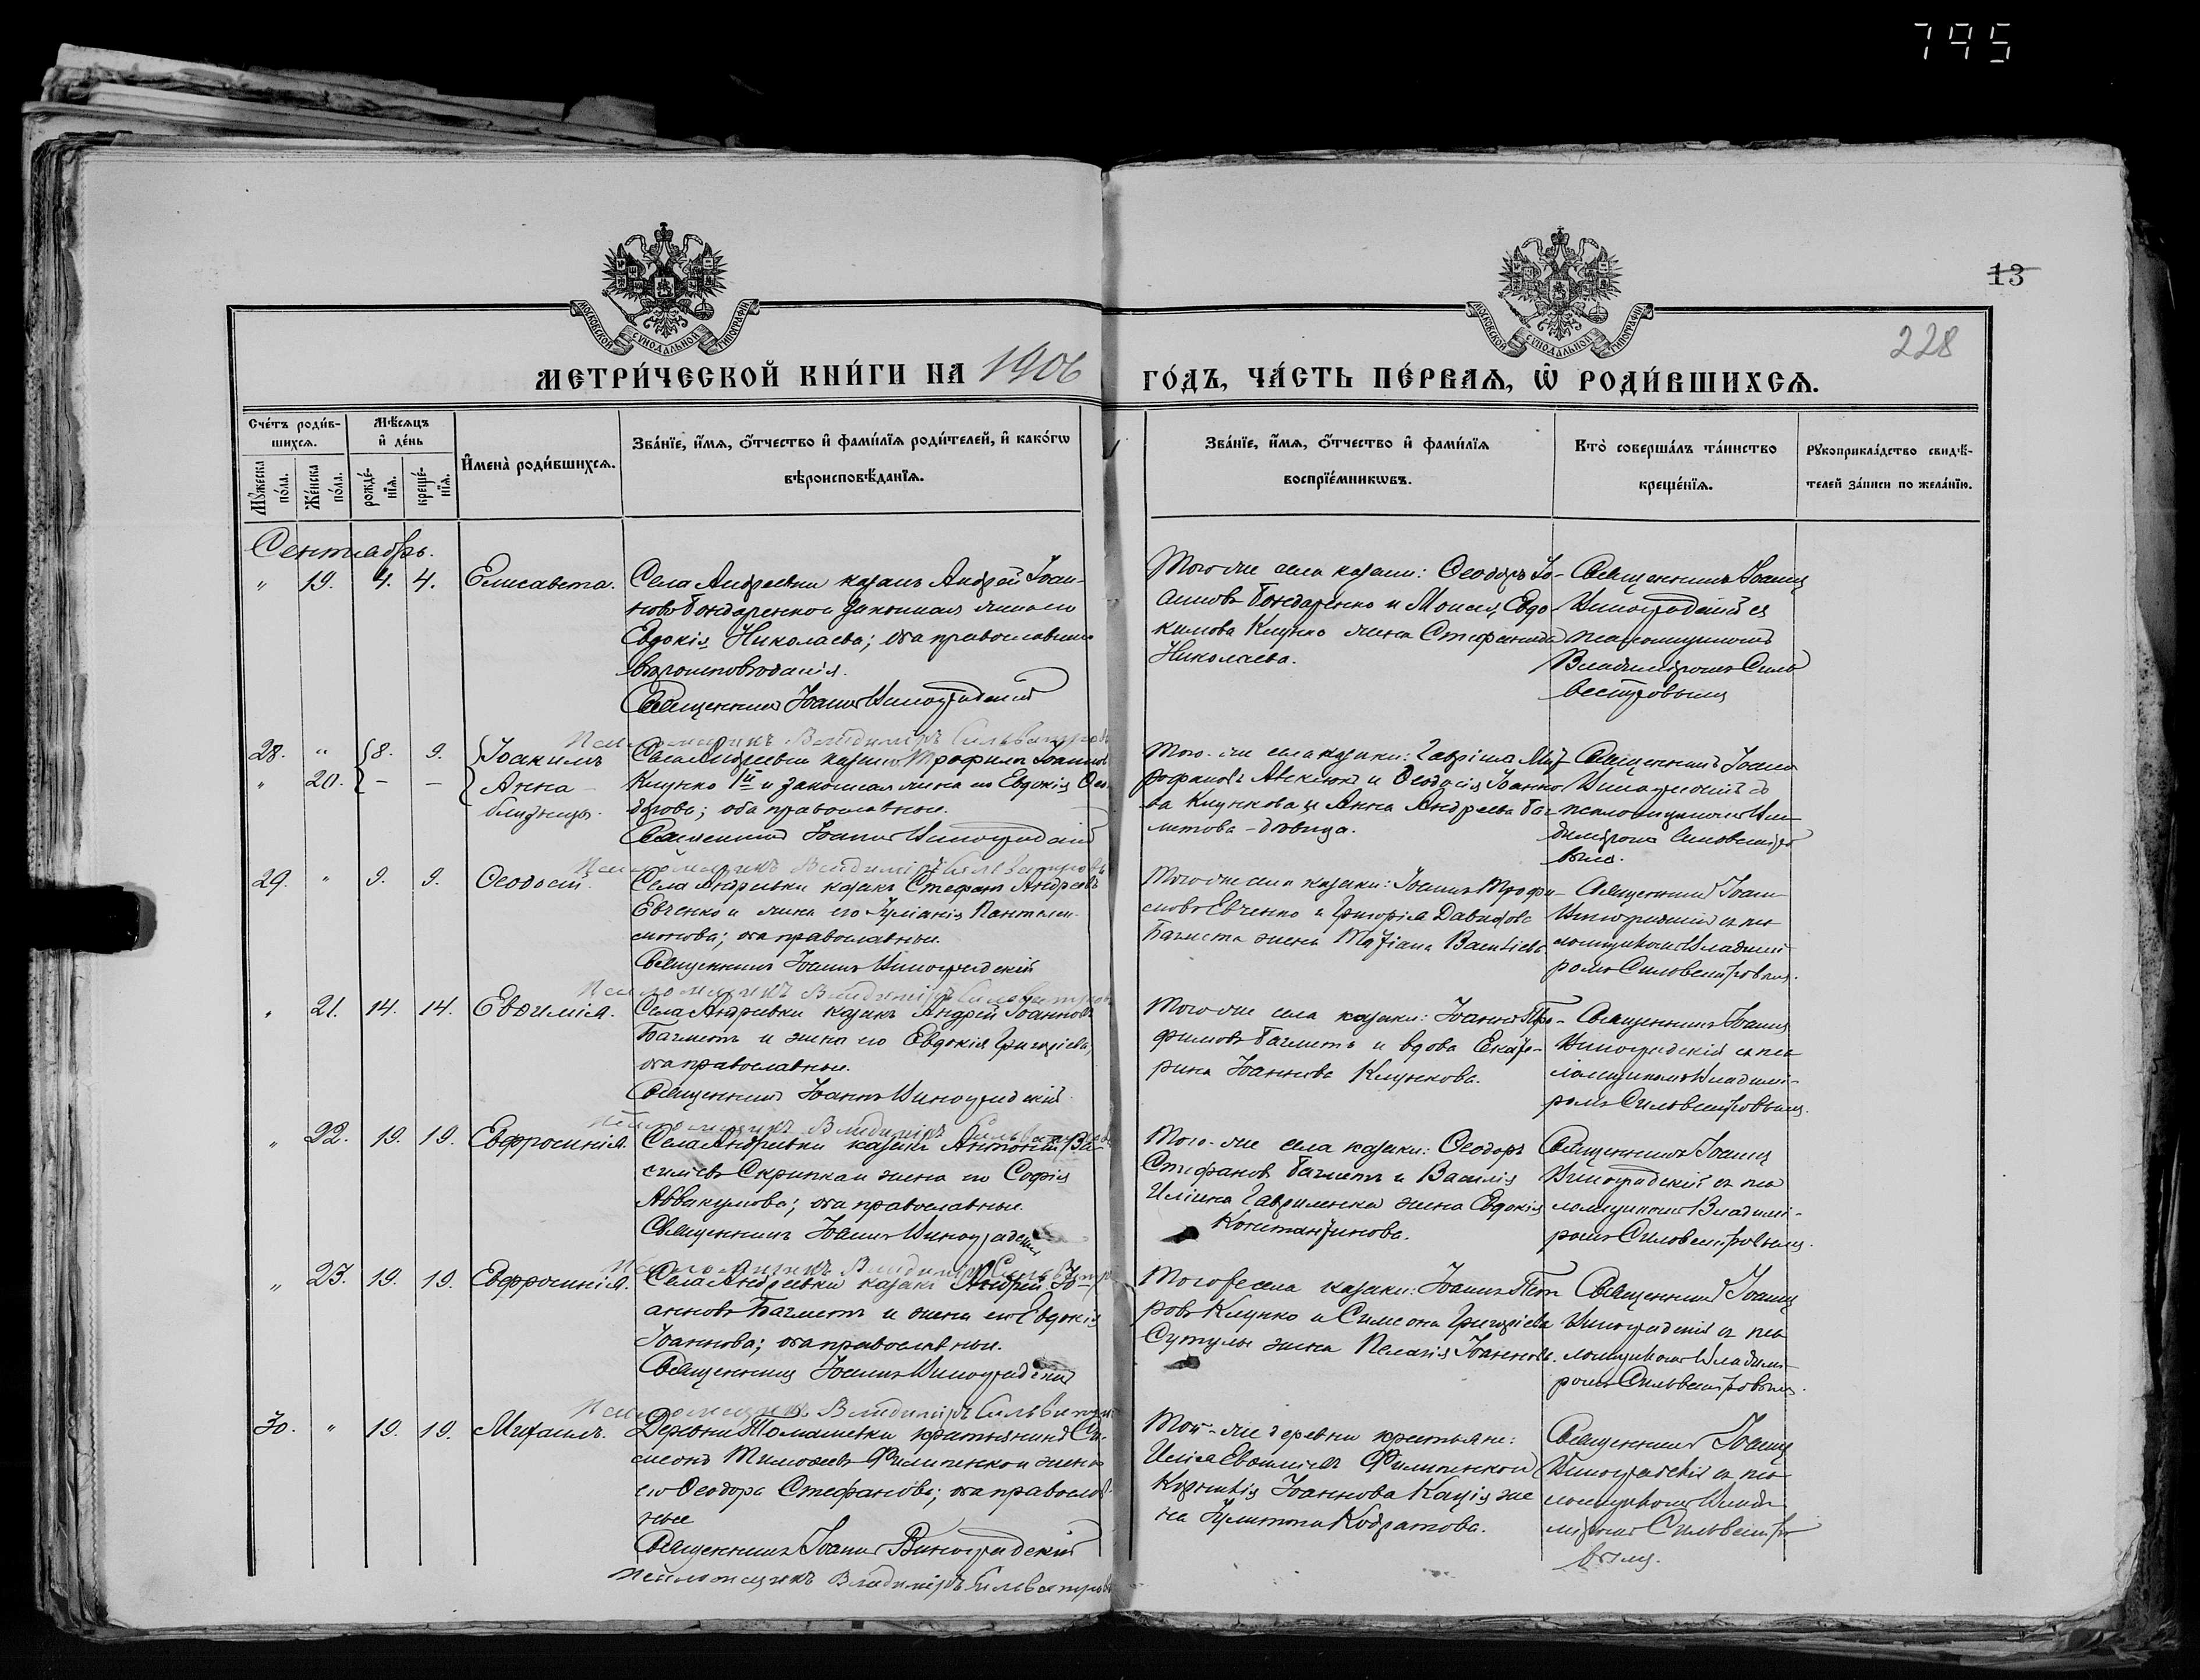 795
13
228
МОСКОВСКОЙ СѴНОДАЛЬНОЙ ТИПОГРАФІИ
МОСКОВСКОЙ СѴНОДАЛЬНОЙ ТИПОГРАФІИ
МЕТРИ́ЧЕСКОЙ КНИ́ГИ НА 1906 ГО́ДЪ, ЧА́СТЬ ПЕ́РВАѦ, Ѡ҆ РОДИ́ВШИХСѦ.
Сче́тъ роди́в-
шихсѧ.
Мꙋ́жеска по́ла.
Же́нска по́ла.
Мѣ́сѧцъ
и҆ де́нь
рожде́-
нїѧ.
креще́-
нїѧ.
И҆мена̀ роди́вшихсѧ.
Зва́нїе, и҆́мѧ, ѻ҆́тчество и҆ фами́лїѧ роди́телей, и҆ како́гѡ
вѣроисповѣ́данїѧ.
Зва́нїе, и҆́мѧ, ѻ҆́тчество и҆ фами́лїѧ
воспрїе́мникѡвъ.
Кто̀ соверша́лъ та́инство
креще́нїѧ.
Рꙋкоприкла́дство свидѣ́-
телей за́писи по жела́нїю.
Сентиабрь.
" 19. 4. 4. Елисавета.
Села Андреевки казакъ Андрей Іоан-
новъ Бондаренко и законная жена его
Евдокія Николаева; оба православнаго
вѣроисповѣданія.
Священникъ Іоаннъ Виноградскій
Псаломщикъ Владиміръ Сильвестровъ
Того-же села казаки: Ѳеодоръ Іо-
анновъ Бондаренко и Моисея Евдо-
кимова Клунко жена Стефанида
Николаева.
Священникъ Іоаннъ
Виноградскій съ
псаломщикомъ
Владиміромъ Силь
вестровымъ
28. " 8. 9. Іоакимъ
" 20. — — Анна
близнецы.
Села Андреевки казакъ Трофимъ Іоанновъ
Клунко и законная жена его Евдокія Ѳео
дорова; оба православные.
Священникъ Іоаннъ Виноградскій
Псаломщикъ Владиміръ Сильвестровъ
Того-же села казаки: Гавріилъ
и Ѳеодосія Іоанно
ва Клункова и Анна Андреева Баг
метова - дѣвица.
Священникъ Іоаннъ
Виноградскій съ
псаломщикомъ Вла
диміромъ Сильвестро
вымъ.
29. " 9. 9. Ѳеодосій.
Села Андреевки казакъ Стефанъ Андреевъ
Евченко и жена его Іуліанія Пантелеи-
монова; оба православные.
Священникъ Іоаннъ Виноградскій
Псаломщикъ Владиміръ Сильвестровъ
Того-же села казаки: Іоаннъ Трофи-
мовъ Евченко и Григорія Давидова
Багмета жена Татіана Василіева.
Священникъ Іоаннъ
Виноградскій съ пса
ломщикомъ Владимі-
ромъ Сильвестровымъ.
" 21. 14. 14. Евѳимія.
Села Андреевки казакъ Андрей Іоанновъ
Багметъ и жена его Евдокія Григоріева,
оба православные.
Священникъ Іоаннъ Виноградскій
Псаломщикъ Владиміръ Сильвестровъ
Того-же села казаки: Іоаннъ Тро-
фимовъ Багметъ и вдова Екате-
рина Іоаннова Клункова.
Священникъ Іоаннъ
Виноградскій съ пса
ломщикомъ Владимі-
ромъ Сильвестровымъ.
" 22. 19. 19. Евфросинія.
Села Андреевки казакъ Антоній Ва-
силіевъ Скрипка и жена его Софія
Аввакумова; оба православные.
Священникъ Іоаннъ Виноградскій
Псаломщикъ Владиміръ Сильвестровъ
Того-же села казаки: Ѳеодоръ
Стефановъ Багметъ и Василія
Иліина Гавриленка жена Евдокія
Константинова.
Священникъ Іоаннъ
Виноградскій съ пса
ломщикомъ Владимі-
ромъ Сильвестровымъ.
" 23. 19. 19. Евфросинія.
Села Андреевки казакъ Андрей Іо-
анновъ Багметъ и жена его Евдокія
Іоаннова; оба православные.
Священникъ Іоаннъ Виноградскій
Псаломщикъ Владиміръ Сильвестровъ
Того же села казаки: Іоаннъ Пет
ровъ Клунко и Симеона Григоріева
Сутулы жена Пелагія Іоаннова.
Священникъ Іоаннъ
Виноградскій съ пса
ломщикомъ Владимі-
ромъ Сильвестровымъ.
30. " 19. 19. Михаилъ.
Деревни Томашевки крестьянинъ Си-
меонъ Тимоѳеевъ Филипенко и жена
его Ѳеодора Стефанова; оба православ-
ные
Священникъ Іоаннъ Виноградскій
Псаломщикъ Владиміръ Сильвестровъ
Той-же деревни крестьяне:
Илія Евѳиміевъ Филипенко и
Іоаннова Кація же
на Іулитта Кодратова.
Священникъ Іоаннъ
Виноградскій съ пса
ломщикомъ Влади-
міромъ Сильвестро
вымъ.